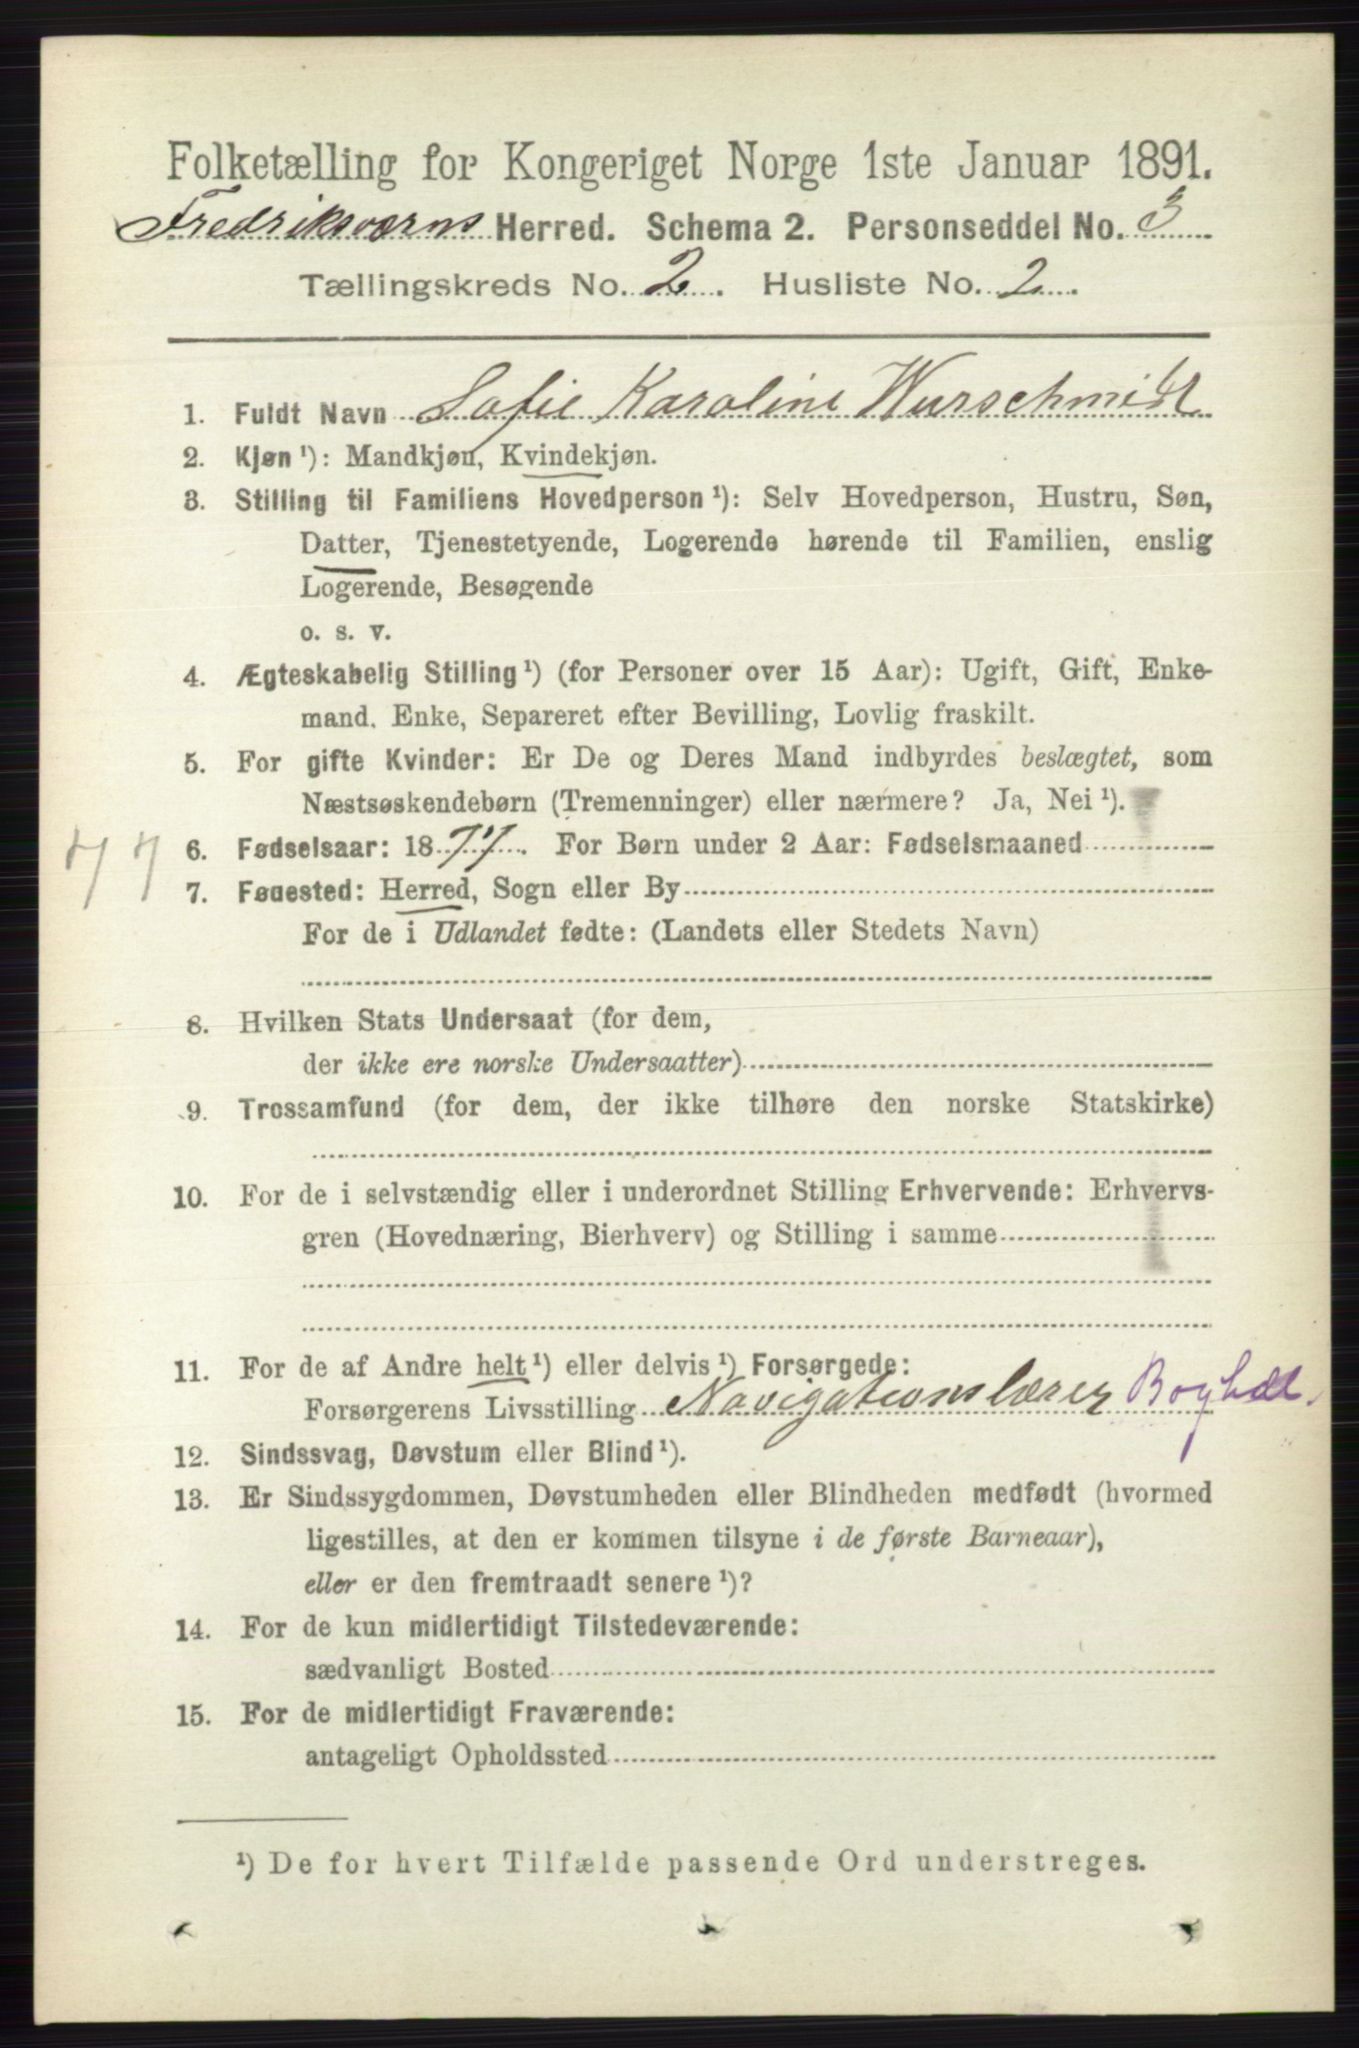 Folketælling for Kongeriget Norge 1ste Januar 1891.
Fredriksværns Herred. Schema 2. Personseddel No. 3
Tællingskreds No. 2. Husliste No. 2.
1. Fuldt Navn Sofie Karoline Wurschmidt
2. Kjøn ¹): Mandkjøn, Kvindekjøn.
3. Stilling til Familiens Hovedperson ¹): Selv Hovedperson, Hustru, Søn,
Datter, Tjenestetyende, Logerende hørende til Familien, enslig
Logerende, Besøgende
o. s. v.
4. Ægteskabelig Stilling ¹) (for Personer over 15 Aar): Ugift, Gift, Enke-
mand, Enke, Separeret efter Bevilling, Lovlig fraskilt.
5. For gifte Kvinder: Er De og Deres Mand indbyrdes beslægtet, som
Næstsøskendebørn (Tremenninger) eller nærmere? Ja, Nei ¹).
77 6. Fødselsaar: 1877. For Børn under 2 Aar: Fødselsmaaned
7. Fødested: Herred, Sogn eller By
For de i Udlandet fødte: (Landets eller Stedets Navn)
8. Hvilken Stats Undersaat (for dem,
der ikke ere norske Undersaatter)
9. Trossamfund (for dem, der ikke tilhøre den norske Statskirke)
10. For de i selvstændig eller i underordnet Stilling Erhvervende: Erhvervs-
gren (Hovednæring, Bierhverv) og Stilling i samme
11. For de af Andre helt ¹) eller delvis ¹) Forsørgede:
Forsørgerens Livsstilling Navigationslærer
12. Sindssvag, Døvstum eller Blind ¹).
13. Er Sindssygdommen, Døvstumheden eller Blindheden medfødt (hvormed
ligestilles, at den er kommen tilsyne i de første Barneaar),
eller er den fremtraadt senere ¹)?
14. For de kun midlertidigt Tilstedeværende:
sædvanligt Bosted
15. For de midlertidigt Fraværende:
antageligt Opholdssted
¹) De for hvert Tilfælde passende Ord understreges.